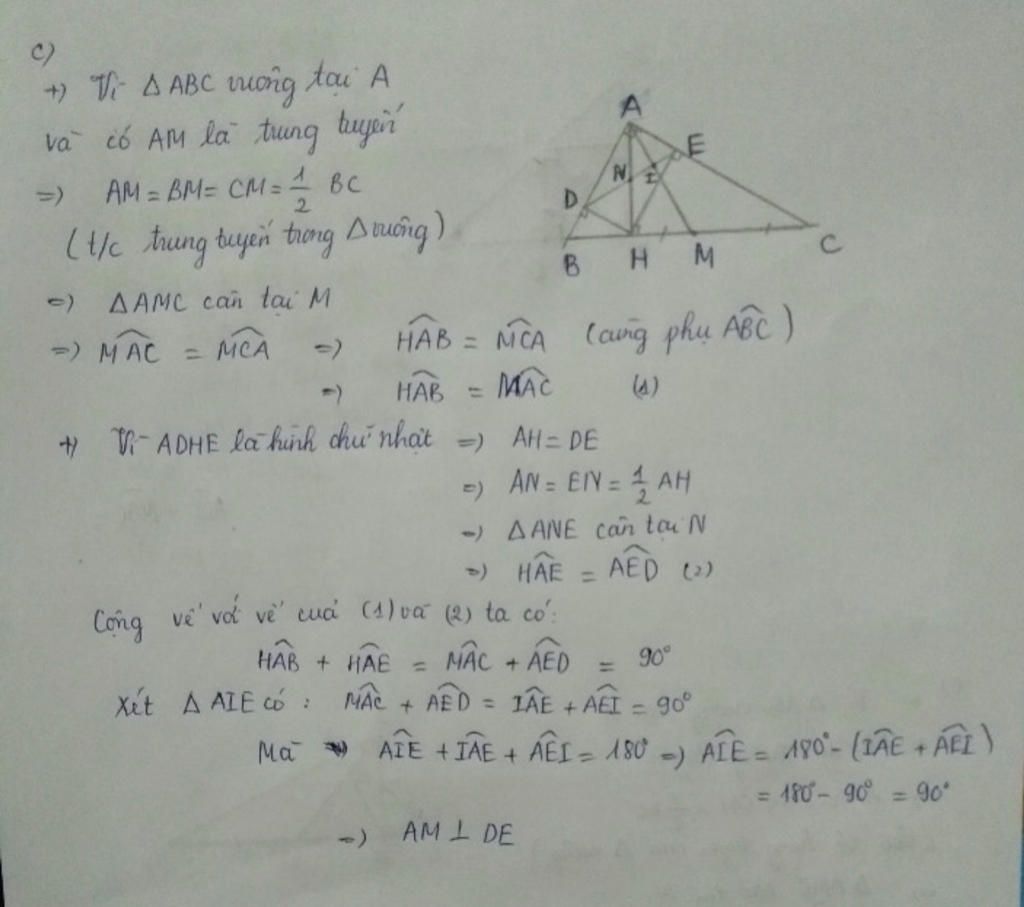 c)
+) Vì △ABC vuông tại A
và có AM là trung tuyến
=> AM = BM = CM = 1/2 BC
(t/c trung tuyến trong △vuông)
=> △AMC cân tại M
=> MAC^ = MCA^ => HAB^ = MCA^ (cùng phụ ABC^)
=> HAB^ = MAC^ (1)
+) Vì ADHE là hình chữ nhật => AH = DE
=> AN = EN = 1/2 AH
=> △ANE cân tại N
=> HAE^ = AED^ (2)
Cộng vế với vế của (1) và (2) ta có:
HAB^ + HAE^ = MAC^ + AED^ = 90°
Xét △AIE có: MAC^ + AED^ = IAE^ + AEI^ = 90°
Mà AIE^ + IAE^ + AEI^ = 180° => AIE^ = 180° - (IAE^ + AEI^)
= 180° - 90° = 90°
=> AM ⊥ DE
A
E
N
I
D
B
H
M
C